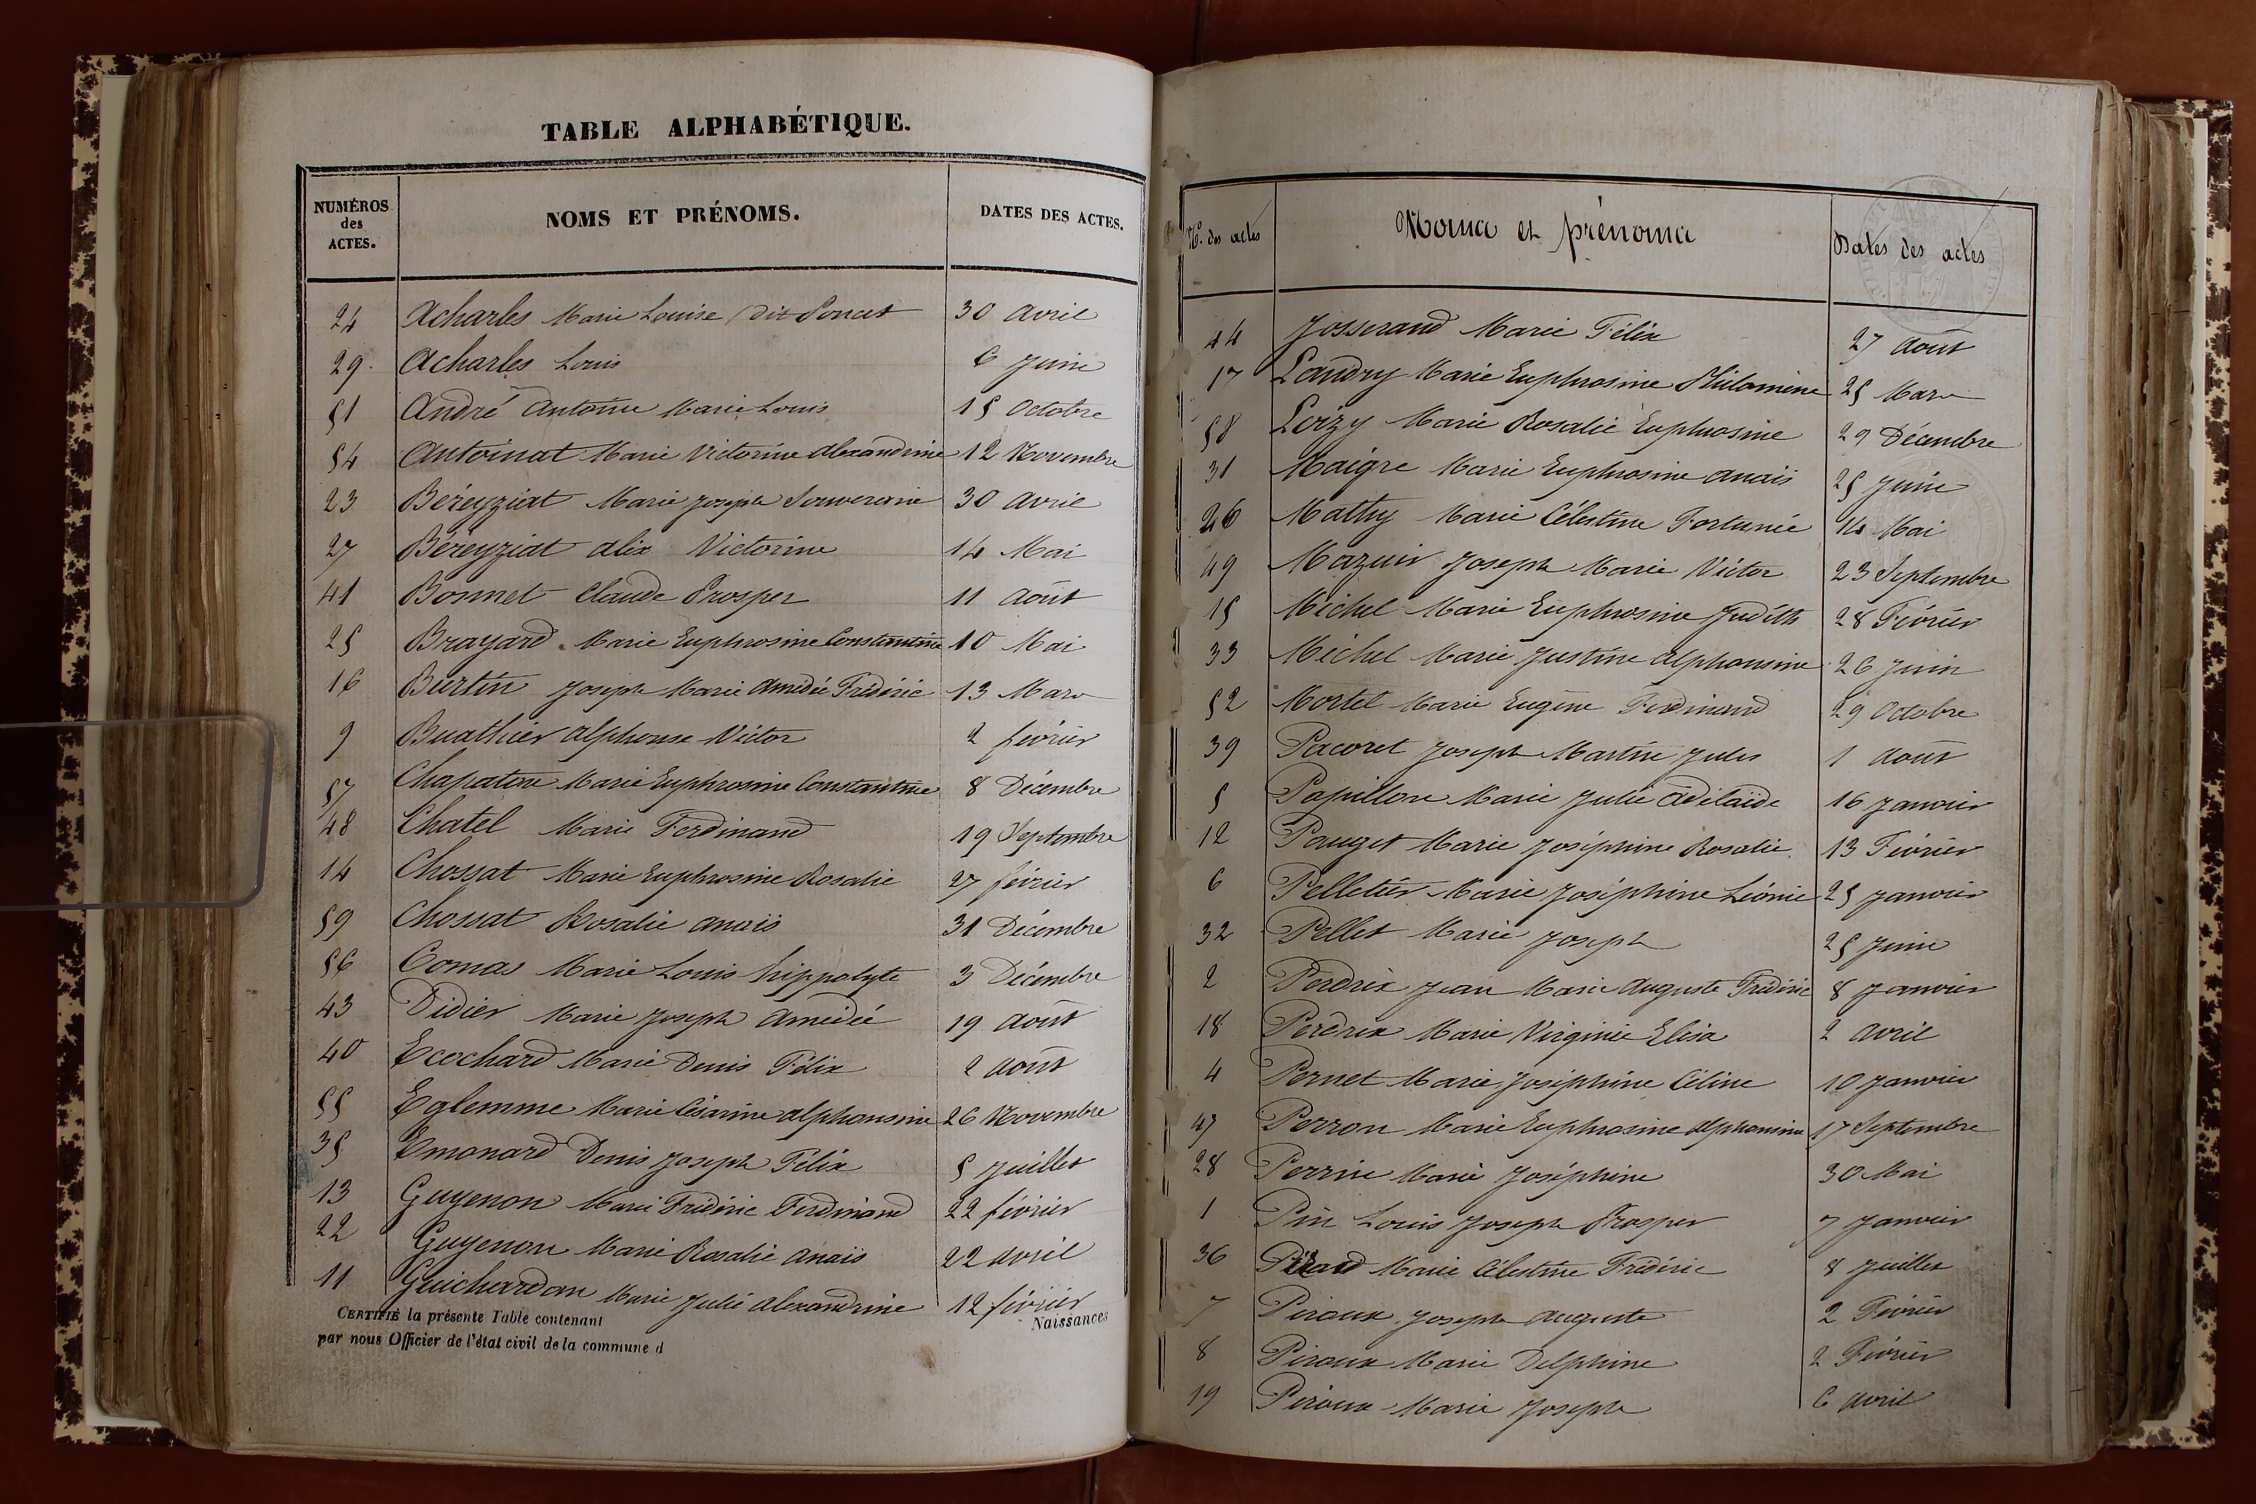 TABLE ALPHABÉTIQUE.
NUMÉROS des ACTES. NOMS ET PRÉNOMS. DATES DES ACTES.
24 Acharles Marie Louise (dit Poncet 30 avril
29. Acharles Louis 6 Juin
51 André Antoine Marie Louis 15 Octobre
54 Antoinat Marie Victorine Alexandrine 12 Novembre
23 Béreyziat Marie Joseph Souverain 30 avril
27 Béreyziat Alix Victorine 14 Mai
41 Bonnet Claude Prosper 11 août
25 Brayard Marie Euphrosine Constantine 10 Mai
16 Burtin Joseph Marie Amédée Frédéric 13 Mars
9 Buathier Alphonse Victor 2 février
57 Chapatin Marie Euphrosine Constantine 8 Décembre
48 Chatel Marie Ferdinand 19 Septembre
14 Chossat Marie Euphrosine Rosalie 27 février
59 Chossat Rosalie Anaïs 31 Décembre
56 Comas Marie Louis hippolyte 3 Décembre
43 Didier Marie Joseph Amédée 19 août
40 Ecochard Marie Denis Félix 2 août
55 Eglemme Marie Césarine Alphonsine 26 Novembre
35 Emonard Denis Joseph Félix 5 Juillet
13 Guyenon Marie Frédéric Ferdinand 22 février
22 Guyenon Marie Rosalie Anaïs 22 avril
11 Guichardan Marie Julie Alexandrine 12 février
CERTIFIÉ la présente Table contenant Naissances
par nous Officier de l'état civil de la commune d
No. des actes Noms et prénoms Dates des actes
44 Josserand Marie Félix 27 août
17 Landry Marie Euphrosine Philomine 25 Mars
58 Loizy Marie Rosalie Euphrosine 29 Décembre
31 Maigre Marie Euphrosine Anaïs 25 Juin
26 Mathy Marie Célestine Fortunée 14 Mai
49 Mazuir Joseph Marie Victor 23 Septembre
15 Michel Marie Euphrosine Judith 28 Février
33 Michel Marie Justine Alphonsine 26 Juin
52 Mortel Marie Eugène Ferdinand 29 Octobre
39 Pacoret Joseph Martin Jules 1 août
5 Papillon Marie Julie Adélaïde 16 Janvier
12 Pauget Marie Joséphine Rosalie 13 Février
6 Pelletier Marie Joséphine Léonie 25 Janvier
32 Pellet Marie Joseph 25 Juin
2 Perdrix Jean Marie Auguste Frédéric 8 Janvier
18 Perdrix Marie Virginie Elisa 2 avril
4 Pernet Marie Joséphine Céline 10 Janvier
47 Perron Marie Euphrosine Alphonsine 17 Septembre
28 Perrin Marie Joséphine 30 Mai
1 Pin Louis Joseph Prosper 7 Janvier
36 Marie Célestine Frédéric 8 Juillet
7 Piroux Joseph Auguste 2 Février
8 Piroux Marie Delphine 2 Février
19 Piroux Marie Joseph 6 avril